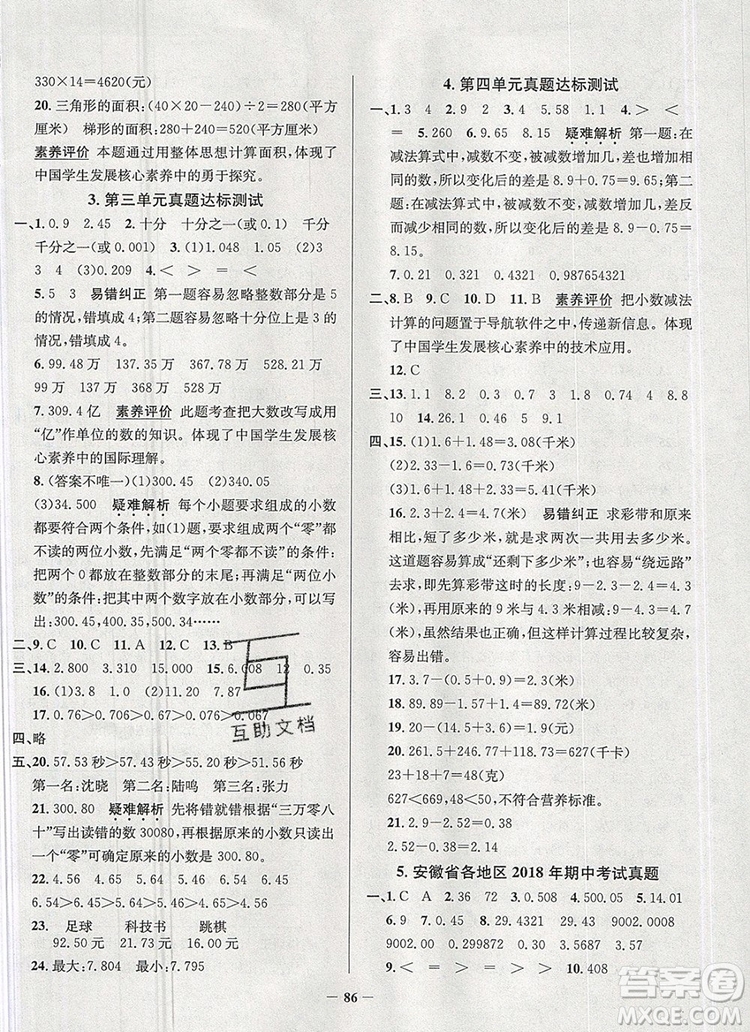 330×14=4620(元)
20. 三角形的面积:(40×20-240)÷2=280(平方
厘米) 梯形的面积:240+280=520(平方厘米)
素养评价 本题通过用整体思想计算面积,体现了
中国学生发展核心素养中的勇于探究。
3. 第三单元真题达标测试
一、1. 0.9 2.45 2. 十分 十分之一(或 0.1) 千分
千分之一(或 0.001) 3. (1)10.020 (2)3
3 4 (3)0.209 4. < > = <
5. 5 3 易错纠正 第一题容易忽略整数部分是 5
的情况,错填成 4。第二题容易忽略十分位上是 3 的
情况,错填成 4。
6. 99.48 万 137.15 万 367.78 万 528.21 万
99 万 137 万 368 万 528 万
7. 309.4 亿 素养评价 此题考查把大数改写成用
“亿”作单位的数的知识。体现了中国学生发展核
心素养中的国际理解。
8. (答案不唯一)(1)300.45 (2)340.05
(3)34.500 疑难解析 每个小题要求组成的小数
都要符合两个条件,如(1)题,要求组成两个“零”都
不读的两位小数,先满足“两个零都不读”的条件:
把两个 0 放在整数部分的末尾;再满足“两位小
数”的条件:其中两个数字放在小数部分,可以写
出:300.45,400.35,500.34……
二、9. C 10. C 11. A 12. C 13. B
三、14. 2.800 3.810 0.030 15. 6.008 12 0.35
16. (1)1040 (2)1.04 7.87
17. 0.76>0.706>0.67>0.076>0.067
四、略
五、20. 57.53 秒>57.43 秒>57.25 秒>56.23 秒
第一名:沈晓 第二名:陆鸣 第三名:张力
21. 300.80 疑难解析 先将错就错根据“三万零八
十”写出读错的数 30080,再根据原来的小数只读出
一个“零”写出原来的小数是 300.80。
22. 4.65>4.56>5.46>5.64>6.45>6.54
6.54>6.45>5.64>5.46>4.65>4.56
23. 足球 科技书 跳棋
92.50 元 21.73 元 16.00 元
24. 最大:7.804 最小:7.795
4. 第四单元真题达标测试
一、1. 3 4 2. 9 3 3. 5.58 1.1 4. > <
= 5. 260 6. 9.65 8.15 疑难解析 第一题:在
减法算式中,减数不变,被减数增加几,差也增加
几,所以变化后的差是 8.9+0.75=9.65。第二
题:在减法算式中,被减数不变,减数增加几,差反
而减少几,所以变化后的差是 8.9-0.75=
8.15。
7. 0.21 0.321 0.4321 0.987654321
二、8. B 9. C 10. D 11. B 素养评价 把小数减法
计算的问题置于导航软件之中,传递新信息。体现
了中国学生发展核心素养中的技术应用。
12. C
三、13. 1.1 8.2 0.3 0.7 1.8 2.9 9.19
10 0 14. 26.1 0.9 6.43 3.8
四、15. (1)1.6+1.48=3.08(千米)
(2)2.33-1.6+1=1.73(千米)
(3)1.6+1.48+2.33=5.41(千米)
16. 2.3+2.4=4.7(米) 易错纠正 求彩带和原来
相比,短了多少米,就是求两次一共用去多少米。
这道题容易算成“还剩下多少米”;也容易“绕远路”
出错,即先算彩带这时的长度:9-2.3-2.4=4.3
(米),再用原来的 9 米减去 4.3 米:9-4.3=4.7
(米)。虽然结果也对,但这样计算过程比较复杂,
容易出错。
17. 3.7-(0.5+1.3+0.9)=1(米)
18. 89.89-1.57-2.95=85.37(米)
19. 2.41-(0.6+0.52)=1.29(米)
20. 261.5+246+2+118.89=628.39(千卡)
23+18+7=48(克)
627<669 48<51,不符合营养标准。
21. 2.9-2.52=0.38
2.52-0.38-0.38=1.76
5. 安徽省各地区 2018 年期中考试真题
一、1. C A 2. 60 3. 0.408 4. 500.05 5. 14.01
6. 9 7. > > 8. 29.4321 9002.008
9002.00 0.299872 0.40 857
9. < = > > = 10. 408
互助文档
86
答案圈
MXQE.COM